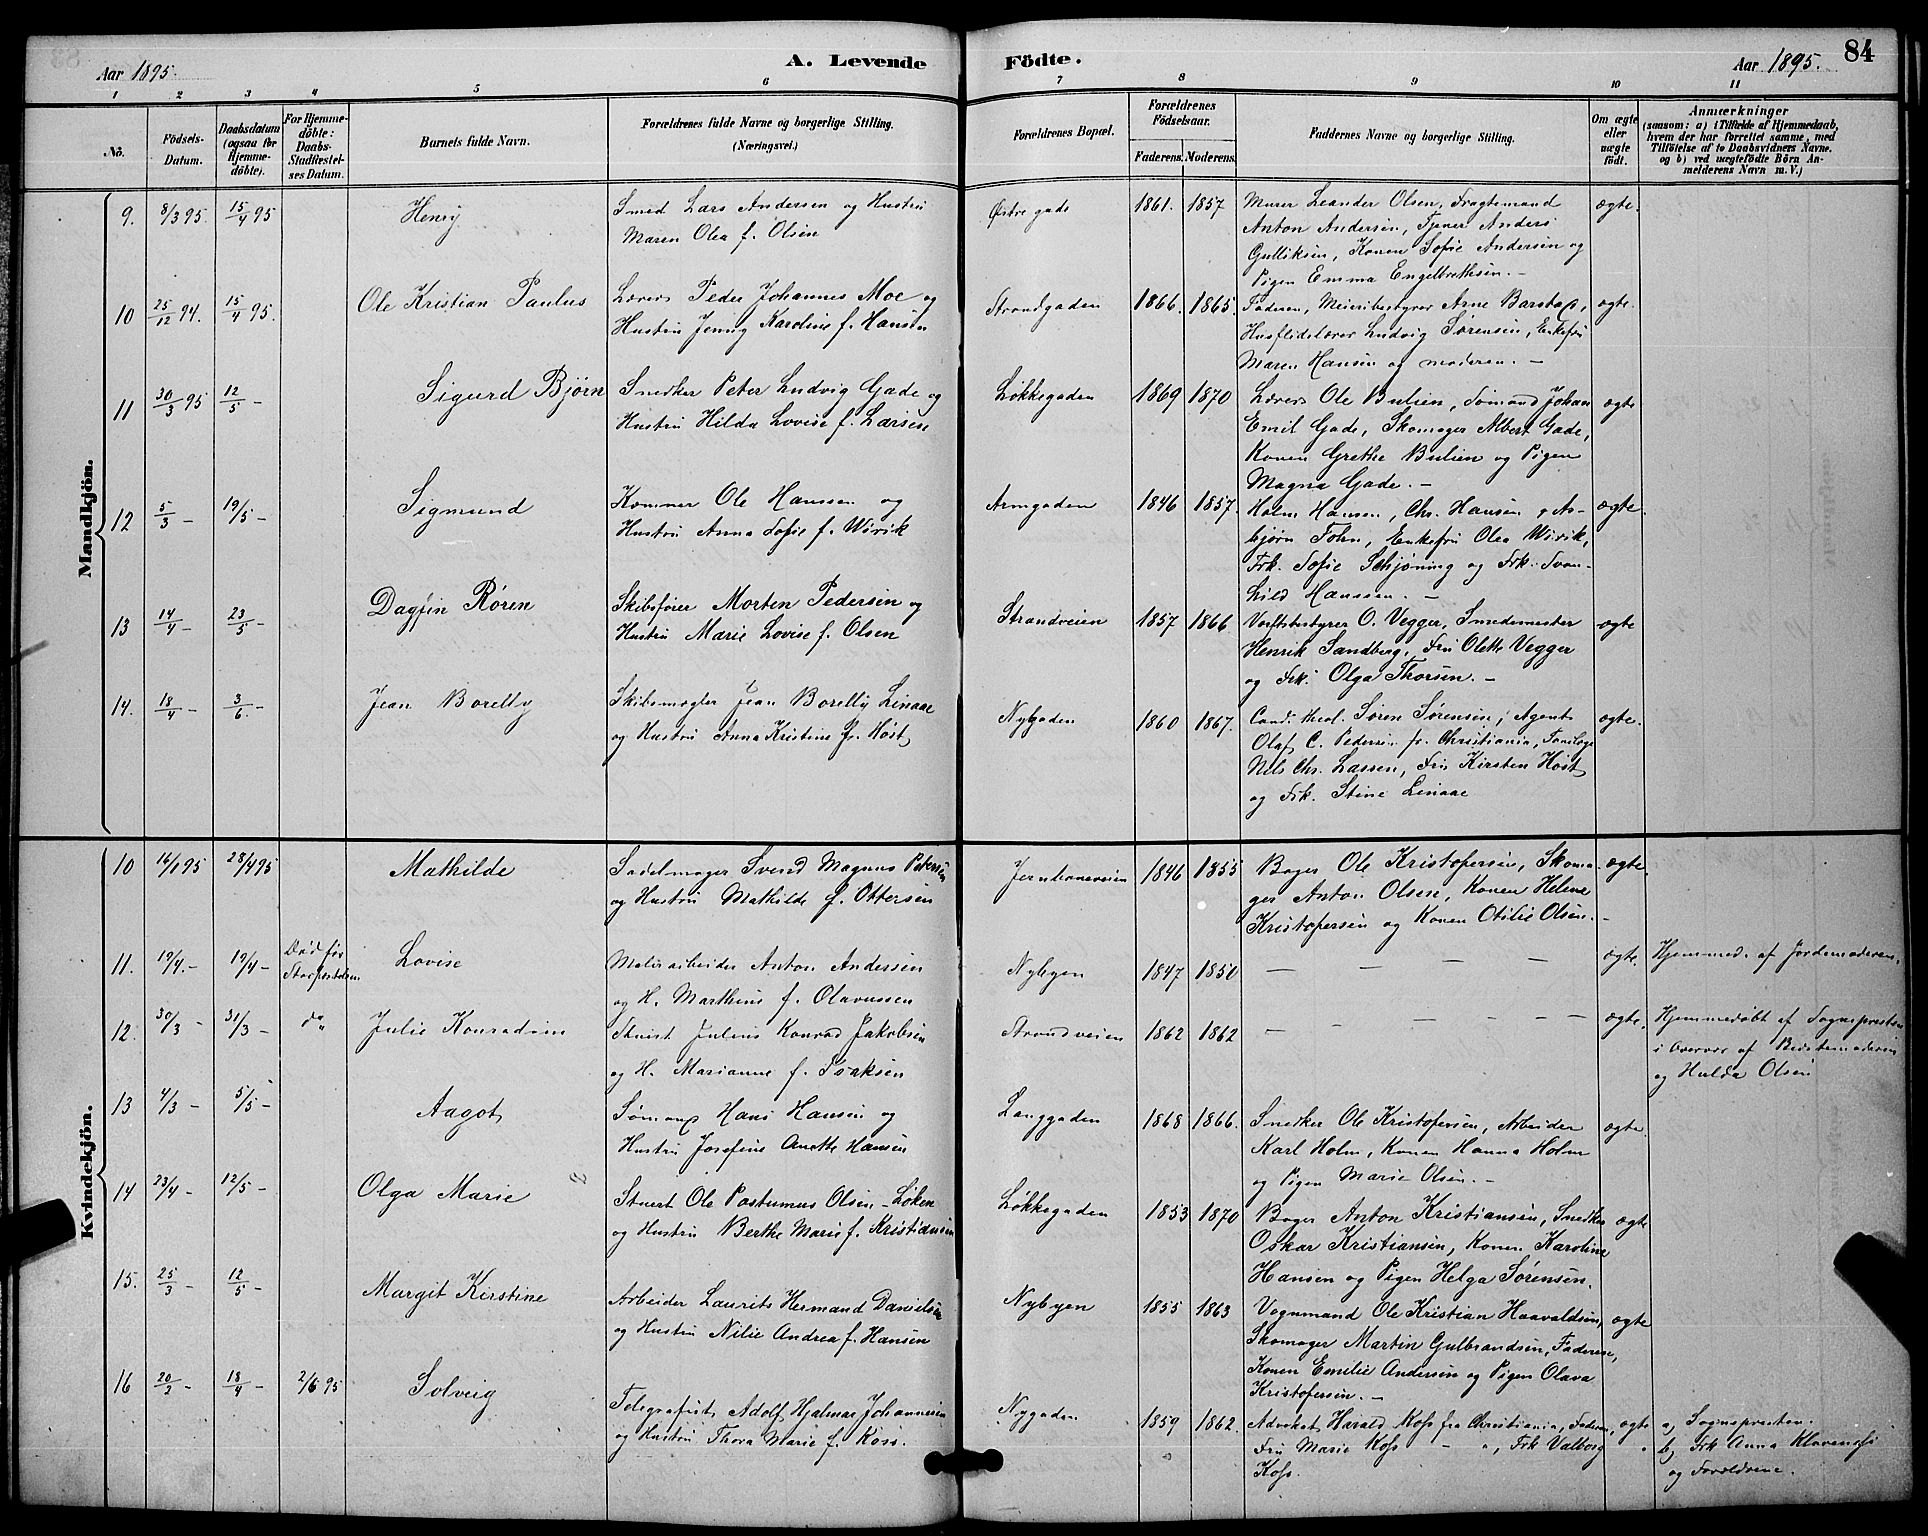 Aar 1895. A. Levende Födte. Aar 1895. 84
1 2 3 4 5 6 7 8 9 10 11
No.
Födsels-Datum.
Daabsdatum (ogsaa for Hjemmedöbte).
For Hjemmedöbte: Daabs-Stadfæstelses Datum.
Barnets fulde Navn.
Forældrenes fulde Navne og borgerlige Stilling. (Næringsvei.)
Forældrenes Bopæl.
Forældrenes Födselsaar.
Faderens. Moderens.
Faddernes Navne og borgerlige Stilling.
Om ægte eller uægte født.
Anmærkninger
(saasom: a) i Tilfælde af Hjemmedaab, hvem der har forrettet samme, med Tilföielse af to Daabsvidners Navne. og b) ved uægtefödte Börn Anmelderens Navn m.V.)
Mandkjön.
9. 8/3 95. 15/4 95 Henry
Smed Lars Andersen og Hustru
Maren Olea f. Olsen
Østre gade 1861. 1857
Murer Leander Olsen, Fragtemand
Anton Andersen, Tjener Anders
Gulliksen, Konen Sofie Andersen og
Pigen Emma Engelbrethsen. –
ægte.
10 25/12 94. 15/4 95. Ole Kristian Paulus
Lærer Peder Johannes Moe og
Hustru Jenny Karoline f. Hansen
Strandgaden 1866. 1865.
Faderen, Meieribestyrer Arne Barstad,
Husflidslærer Ludvig Sørensen, Enkefru
Maren Hansen og moderen. –
ægte.
11 30/3 95 12/5 – Sigurd Bjørn
Snedker Peter Ludvig Gade og
Hustru Hilda Lovise f. Larsen
Løkkegaden 1869 1870
Lærer Ole Bulien, Sømand Johan
Emil Gade, Skomager Albert Gade,
Konen Grethe Bulien og Pigen
Magna Gade. –
ægte
12 5/3 – 19/5 – Sigmund
Ole Hanssen og
Hustru Anna Sofie f. Wirik
Armgaden 1846 1857.
Holm Hansen, Chr. Hansen, As-
bjørn Fohn, Enkefru Olea Wirik,
Frk. Sofie Schjøning og Frk. Svan-
hild Hanssen. –
ægte.
13 14/4 – 23/5 – Dagfin Røren
Skibsfører Morten Pedersen og
Hustru Marie Lovise f. Olsen
Strandveien 1857 1866
Værftsbestyrer O. Vegger, Smedemester
Henrik Sandberg, Fru Olette Vegger
og Frk. Olga Thorsen. –
ægte
14. 18/4 – 3/6. – Jean Borelly
Skibsmægler Jean Borelly Linaae
og Hustru Anna Kristine f. Høst
Nygaden 1860 1867.
Cand. theol. Søren Sørensen, Agent
Olaf C. Pedersen fr. Christiania,
Nils Chr. Lassen, Fru Kirsten Høst
og Frk. Stine Linaae
ægte.
Kvindekjön.
10 16/1 95 28/4 95 Mathilde
Sadelmager Svend Magnus Petersen
og Hustru Mathilde f. Ottersen
Jernbaneveien 1846 1855
Bager Ole Kristofersen, Skoma-
ger Anton Olsen, Konen Helene
Kristofersen og Konen Otilie Olsen. –
ægte.
11. 19/4. – 19/4 – Død før Stadfæstelsen Lovise
Anton Andersen
og H. Marthine f. Olavussen
Nybyen 1847 1850
– – – –
ægte. Hjemmed. af Jordemoderen.
12. 30/3 – 31/3 – do Julie Konradine
Stuert Julius Konrad Jakobsen
og H. Marianne f. Isaksen
Strandveien 1862 1862
– – – – – – –
ægte. Hjemmedøbt af Sognepresten
i Overvær af Bedstemoderen
og Hulda Olsen
13 4/3 – 5/5 – Aagot
Sømand Hans Hansen og
Hustru Josefine Anette Hansen
Langgaden 1868 1866.
Snedker Ole Kristofersen, Arbeider
Karl Holm, Konen Hanna Holm
og Pigen Marie Olsen. –
ægte.
14 23/4 – 12/5 – Olga Marie
Stuert Ole Postumus Olsen – Løken
og Hustru Berthe Marie f. Kristiansen
Løkkegaden 1853 1870
Bager Anton Kristiansen, Snedker
Oskar Kristiansen, Konen Karoline
Hansen og Pigen Helga Sørensen.
ægte
15. 25/3 – 12/5 – Margit Kirstine
Arbeider Laurits Hermand Danielsen
og Hustru Nilie Andrea f. Hansen
Nybyen 1855 1863
Vognmand Ole Kristian Haavaldsen,
Skomager Martin Gulbrandsen, Faderen,
Konen Emilie Andersen og Pigen Olava
Kristofersen. –
ægte
16 20/2 – 18/4 – 2/6 95 Solveig
Telegrafist Adolf Hjalmar Johannesen
og Hustru Thora Marie f. Koss.
Nygaden 1859 1862.
Advokat Harald Koss fra Christiania, Faderen,
Fru Marie Koss – " , Frk Valborg
Koss.
ægte a) Sognepresten.
b) Frk Anna Klaveness
og Forældrene.